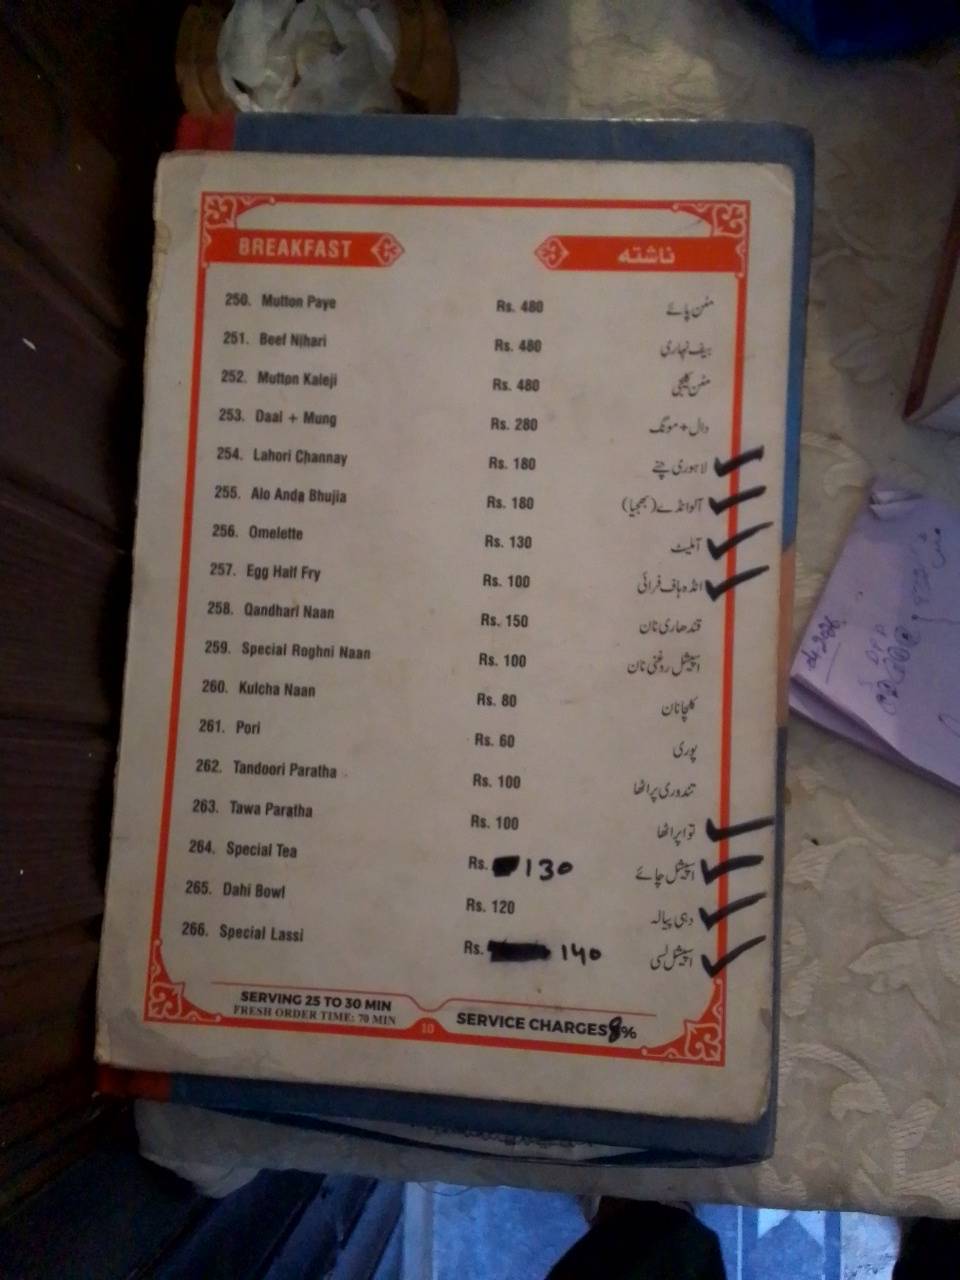 BREAKFAST ناشتہ
250. Mutton Paye Rs. 480 مٹن پائے
251. Beef Nihari Rs. 480 بیف نہاری
252. Mutton Kaleji Rs. 480 مٹن کلیجی
253. Daal + Mung Rs. 280 دال + مونگ
254. Lahori Channay Rs. 180 لاہوری چنے
255. Alo Anda Bhujia Rs. 180 آلو انڈے (بھجیا)
256. Omelette Rs. 130 آملیٹ
257. Egg Half Fry Rs. 100 انڈہ ہاف فرائی
258. Qandhari Naan Rs. 150 قندھاری نان
259. Special Roghni Naan Rs. 100 اسپیشل روغنی نان
260. Kulcha Naan Rs. 80 کلچا نان
261. Pori Rs. 60 پوری
262. Tandoori Paratha Rs. 100 تندوری پراٹھا
263. Tawa Paratha Rs. 100 توا پراٹھا
264. Special Tea Rs. 130 اسپیشل چائے
265. Dahi Bowl Rs. 120 دہی پیالہ
266. Special Lassi Rs. 140 اسپیشل لسی
SERVING 25 TO 30 MIN
FRESH ORDER TIME: 70 MIN
10
SERVICE CHARGES 8%